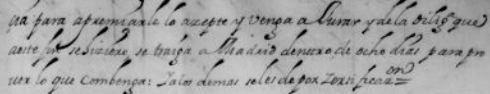 ɋa para apremiarle lo azepte y venga a Jurar y de la dilig. que
a este fin se hiziere se traiga a Madrid dentro de ocho dias para pro
ver lo que combenga: Ya los demas se les de por Zertificaon